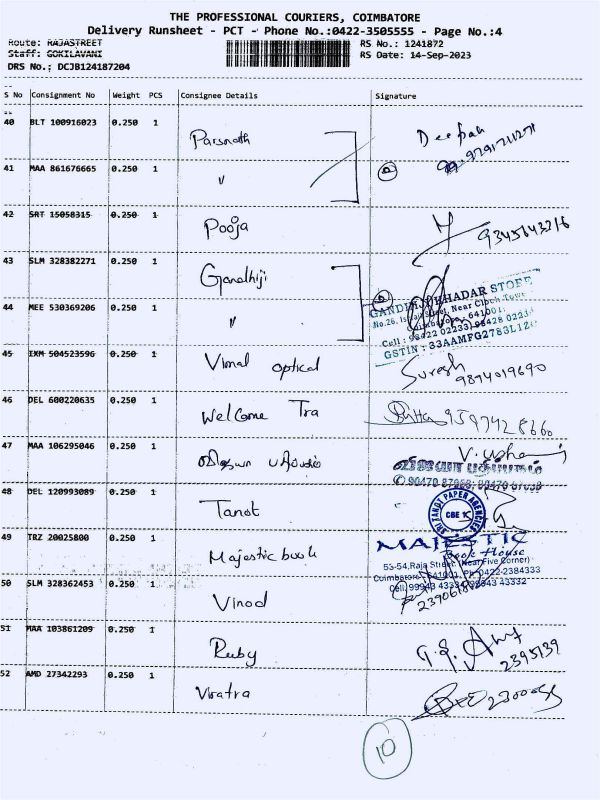 THE PROFESSIONAL COURIERS, COIMBATORE
Delivery Runsheet - PCT - Phone No.:0422-3505555 - Page No.:4
Route: RAJASTREET RS No.: 1241872
Staff: GOKILAVANI RS Date: 14-Sep-2023
DRS No.: DCJB124187204
S No Consignment No Weight PCS Consignee Details Signature
40 BLT 100916023 0.250 1 Parsnath Deepak
41 MAA 861676665 0.250 1 〃
42 SRT 15058315 0.250 1 Pooja 9345643216
43 SLM 328382271 0.250 1 Gandhiji
44 MEE 530369206 0.250 1 〃
GANDHIJI KHADAR STORE
Near Clock Tower
Coimbatore - 641001.
GSTIN : 33AAMFG2783L1Z
45 IXM 504523596 0.250 1 Vimal optical Suresh
9894019690
46 DEL 600220635 0.250 1 Welcome Tra
47 MAA 106295046 0.250 1 V. usha
விஜயா பதிப்பகம்
48 DEL 120993089 0.250 1 Tanot
SRI TANOT PAPER AGENCIES
CBE 1
49 TRZ 20025800 0.250 1 Majestic book
MAJESTIC
Book House
53-54, Raja Street, (Near Five Corner)
Coimbatore - 641001. Ph: 0422-2384333
50 SLM 328362453 0.250 1 Vinod
51 MAA 103861209 0.250 1 Ruby 2395139
52 AMD 27342293 0.250 1 Viratra
10